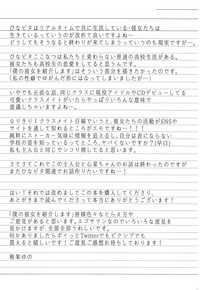 ひなビタはリアルタイムで共に生活している・彼女たちは
生きているっていうのが改めて良いですよね…
どうしてもそうなると終わりが来てしまうっていうのも現実ですが…。
ひなビタ♪こなつは私たちと変わらない普通の高校生がある。
彼女たちも高校生の恋愛をしてると思うんです。
「僕の彼女を紹介します」はそういう部分を描きたかったのです。
(私の性癖でゆがんだ形になってしまっていますが…。)
いやでも正直な話、同じクラスに現役アイドルやCDデビューしてる
可愛いクラスメイトがいたらやっぱりいろんな意味で
意識しちゃいますよね…。
なりきり！クラスメイト目線でいうと、彼女たちの活動がSNSや
サイトを通して知れるところがエモですよねー！！！
純粋にストーカー気味に情報を追えるし、自分は表にならない
学校の姿を知っているってところ、ヤバくないですか？(早口)
私も主人公と同じでシコり隊してると思います。
さてさてこれでこの主人公と心菜ちゃんのお話は終わったのですが
またひなビタ関連でお話作りたいですね…！
はい！それでは改めましてこの本を購入してくださり、
あとがきまで読んでくださって本当にありがとうございます！
「僕の彼女を紹介します」皆様色々なとらえ方や
ご意見があると思います。エゴサマンなのでいろいろな意見を
見かけますが、全部全部うれしいです。
何かありましたらポイっとTwitterでもピクシブでも
貰えると嬉しいです！ご意見ご感想お待ちしております！